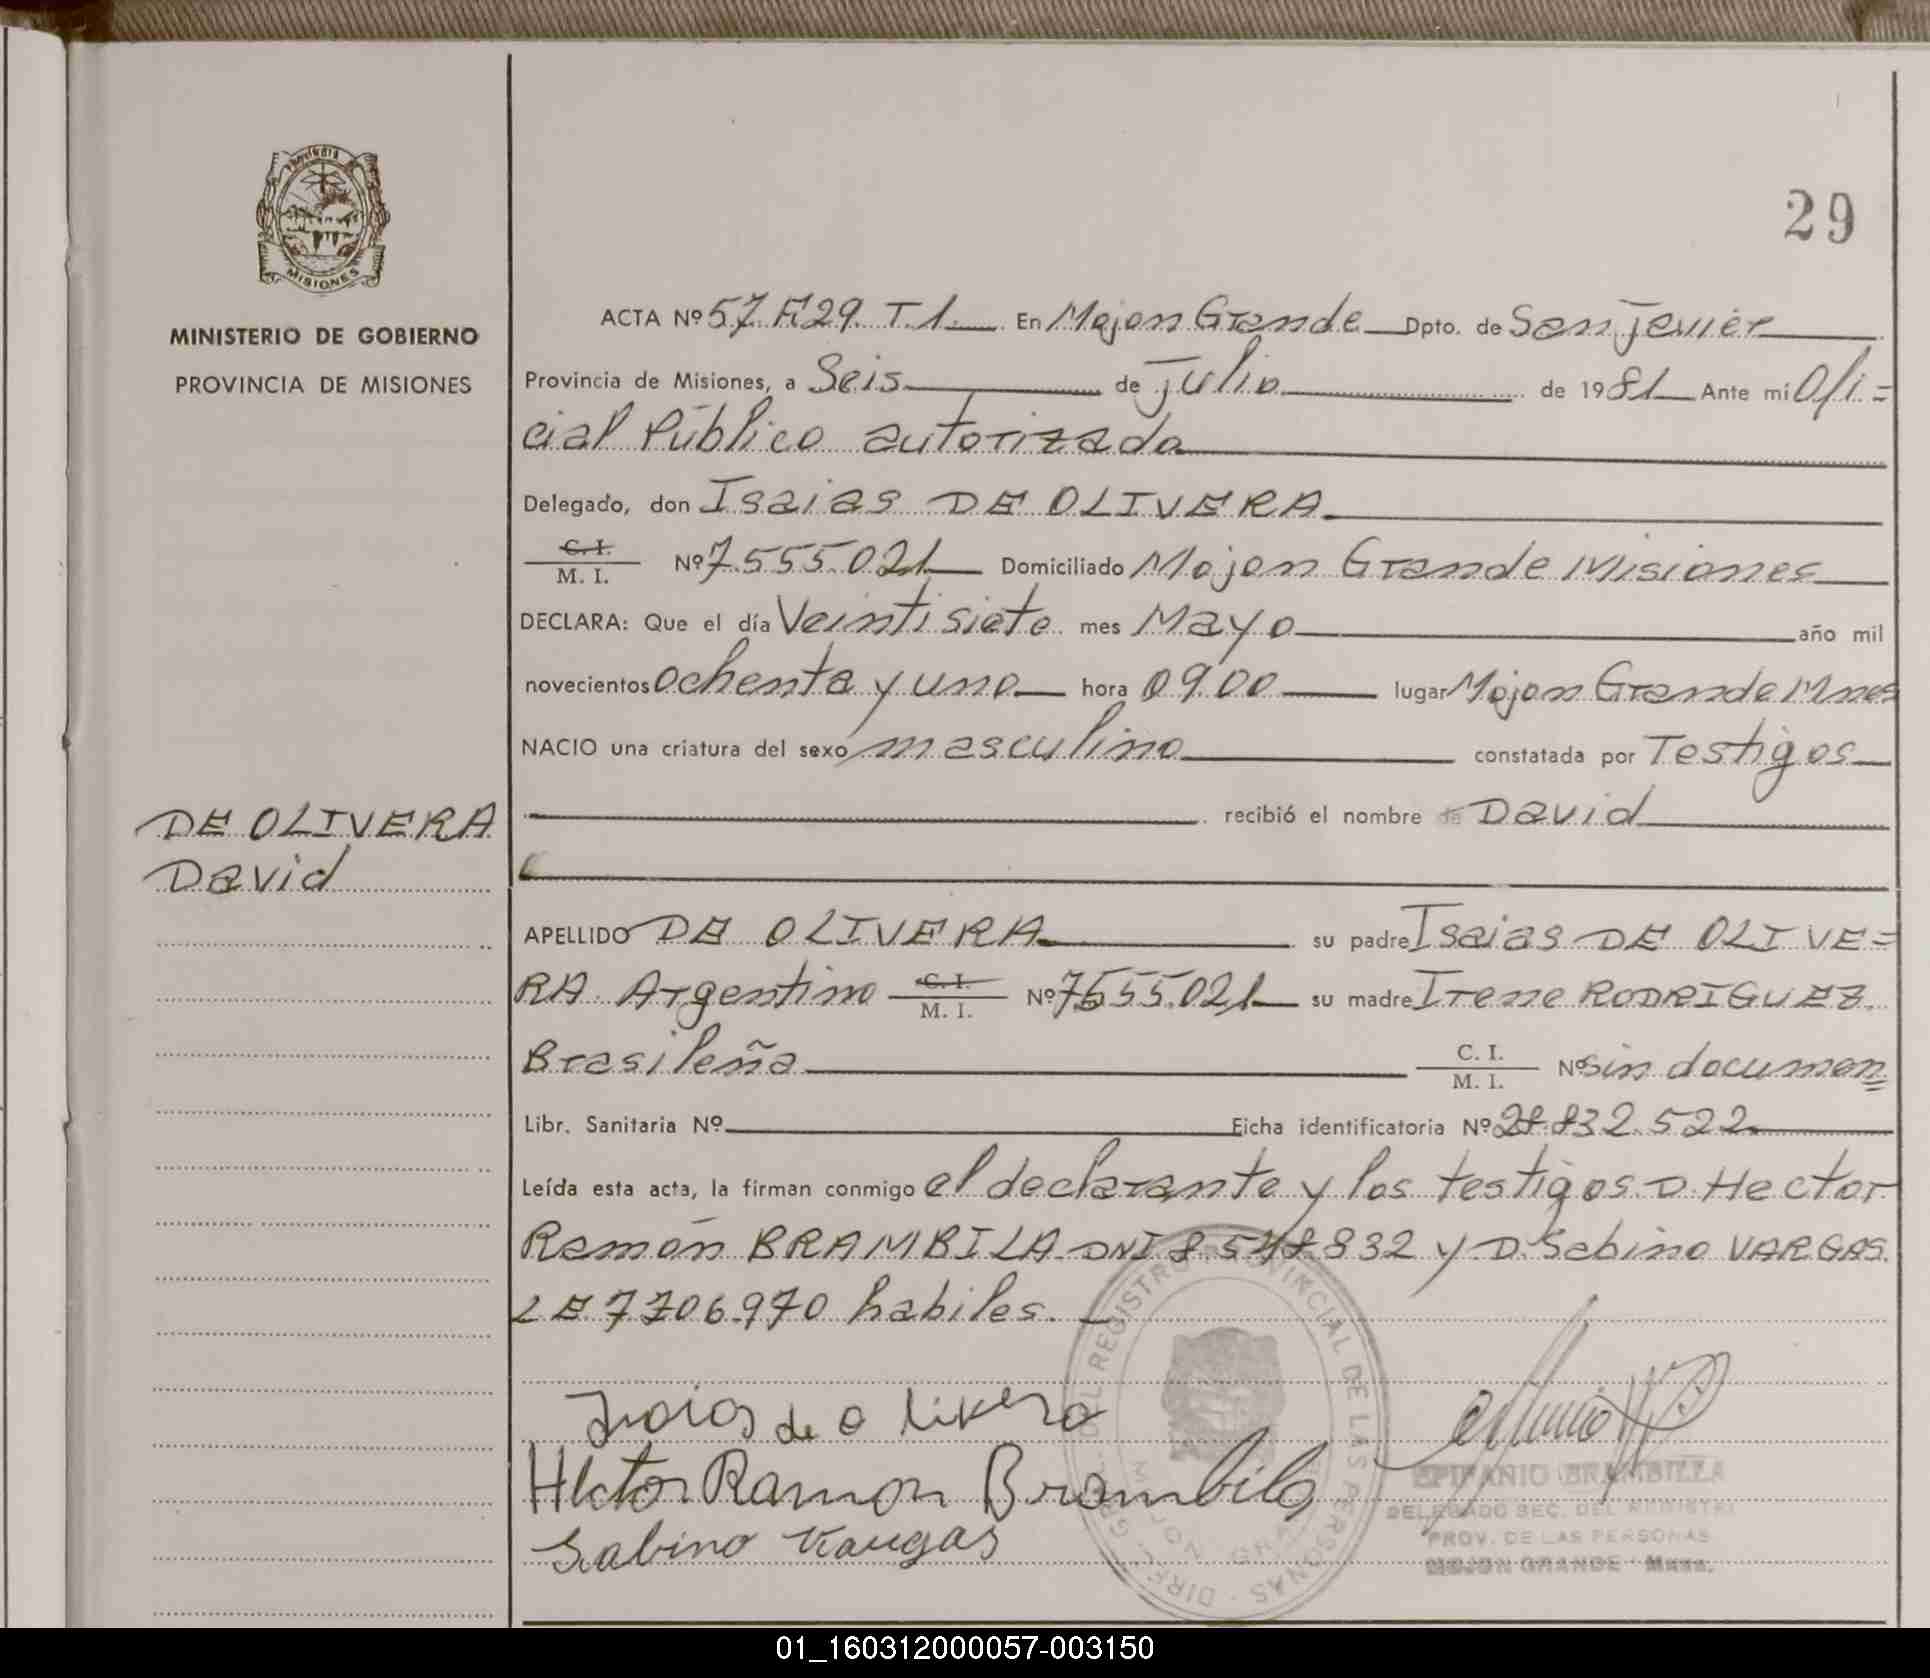 PROVINCIA DE
MISIONES
MINISTERIO DE GOBIERNO
PROVINCIA DE MISIONES
DE OLIVERA
David
29
ACTA Nº 57. F.29. T.1. En Mojon Grande Dpto. de San Javier
Provincia de Misiones, a Seis de Julio de 1981 Ante mi Ofi=
cial Público autorizado
Delegado, don Isaias DE OLIVERA
C. I.
M. I. Nº 7.555.021 Domiciliado Mojon Grande Misiones
DECLARA: Que el día Veintisiete mes Mayo año mil
novecientos ochenta y uno hora 09.00 lugar Mojon Grande Mnes
NACIO una criatura del sexo masculino constatada por Testigos
recibió el nombre de David
APELLIDO DE OLIVERA su padre Isaias DE OLIVE=
RA Argentino C. I. M. I. Nº 7555.021 su madre Irene RODRIGUEZ
Brasileña C. I. M. I. Nº sin documen=
Libr. Sanitaria Nº Ficha identificatoria Nº 28.832.522
Leída esta acta, la firman conmigo el declarante y los testigos D. Hector
Ramón BRAMBILA DNI 8.548.832 y D. Sabino VARGAS
LE 7706.970 habiles.
Isaias de olivera
Hector Ramon Brambila
Sabino Vargas
DIREC. GRAL. DEL REGISTRO PROVINCIAL DE LAS PERSONAS
MOJON GRANDE
EPIFANIO BRAMBILLA
DELEGADO SEC. DEL REGISTRO
PROV. DE LAS PERSONAS
MOJON GRANDE - Mnes.
01_160312000057-003150